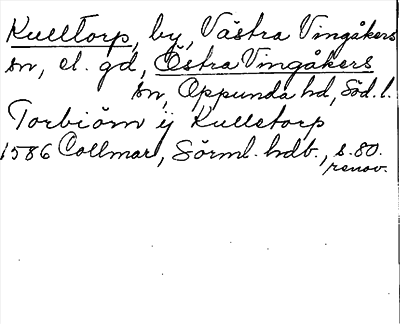 Kulltorp, by, Västra Vingåkers
sn, el. gd, Östra Vingåkers
sn, Oppunda hd, Söd. l.
Torbiörn ij Kulletorp
1586 Collmar, Sörml. hdb., s. 80.
renov.